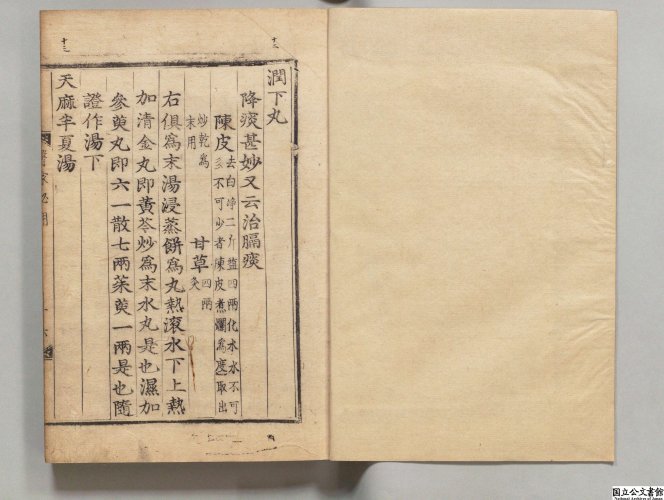 潤下丸
降痰甚妙又云治膈痰
陳皮去白淨二斤盐四兩化水水不可
多不可少者陳皮煮爛爲度取出
炒乾爲
末用
甘草四兩
炙
右俱爲末湯浸蒸餅爲丸熱滾水下上熱
加清金丸即黄芩炒爲末水丸是也濕加
參萸丸即六一散七兩茱萸一兩是也隨
證作湯下
天麻半夏湯
国立公文書館
National Archives of Japan